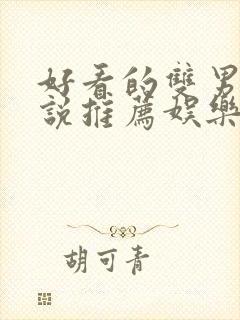 好看的雙男
說推薦娛樂
胡可青